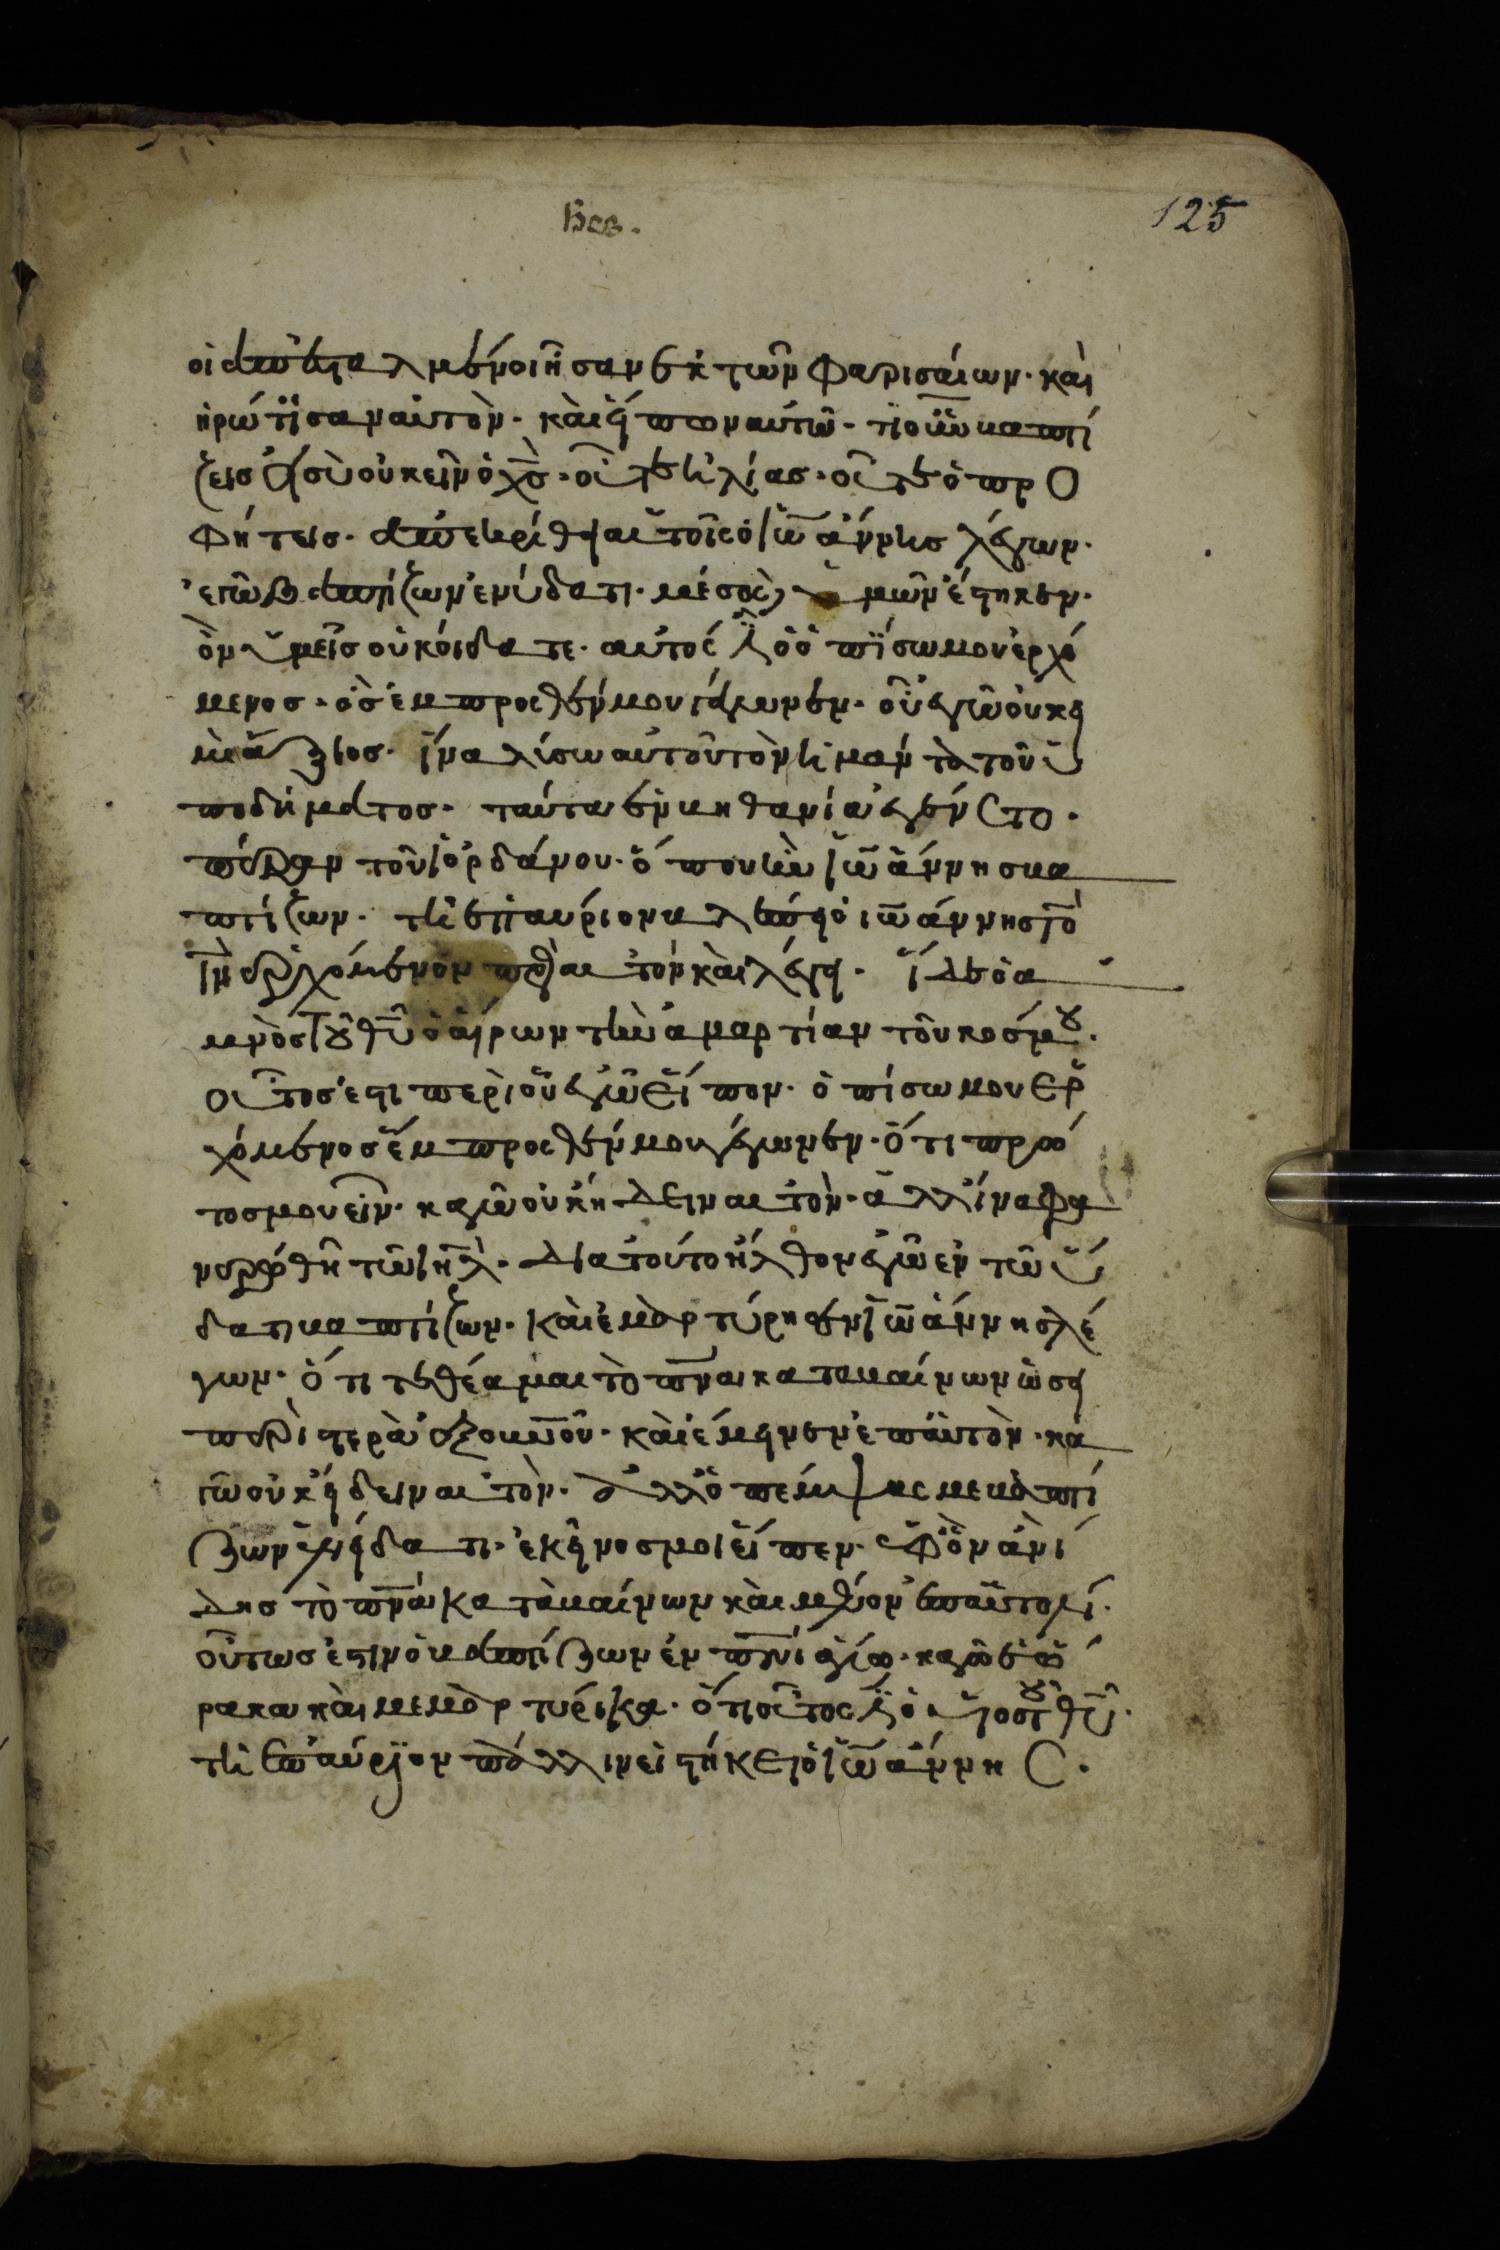 125
οἱ ἀπεσταλμένοι ἦσαν ἐκ τῶν φαρισαίων· καὶ
ἠρώτησαν αὐτὸν· καὶ εἶπον αὐτῶ· τί οὖν βαπτί
ζεις εἰ σὺ οὐκ εἶ ὁ χς· οὔτε ἠλίας· οὔτε ὁ προ
φήτεις· ἀπεκρίθη αὐτοῖς ὁ ἰωάννης λέγων·
ἐγὼ βαπτίζων ἐν ὕδατι· μέσος δὲ ὑμῶν ἔστηκεν·
ὃν ὑμεῖς οὐκ οἴδατε· αὐτός ἐστιν ὁ ὀπίσω μου ἐρχό
μενος· ὃς ἔμπροσθέν μου γέγωνεν· οὗ ἐγὼ οὐκ εἰ
μὶ ἄξιος· ἵνα λίσω αὐτοῦ τὸν ἱμάντα τοῦ ὑ
ποδήματος· ταῦτα ἐν βηθανία ἐγένετο·
πέραν τοῦ ἰορδάνου· ὅπου ἦν ἰωάννης βα
πτίζων· τῆ ἐπαύριον βλέπει ὁ ἰωάννης τὸ
ιν ἐρχόμενον πρὸς αὐτὸν καὶ λέγει· ἴδε ὁ ἀ
μνὸς τοῦ θυ ὁ αἴρων τὴν ἁμαρτίαν τοῦ κόσμου·
οὗτος ἐστι περὶ οὗ ἐγὼ εἶπον· ὀπίσω μου ἐρ
χόμενος ἔμπροσθέν μου γέγωνεν· ὅτι πρῶ
τος μου εἶν· καγὼ οὐκ ἤδειν αὐτὸν· ἀλλ' ἵνα φα
νερωθῆ τῶ ιηλ· διὰ τοῦτο ἦλθον ἐγὼ ἐν τῶ ὕ
δατι βαπτίζων· καὶ ἐμαρτύρησεν ἰωάννης λέ
γων· ὅτι τεθέαμαι τὸ πνα καταβαίνων ὡσεὶ
περιστερὰ ἐξ οὐνοῦ· καὶ ἔμεινεν ἐπ' αὐτὸν· κα
γὼ οὐκ ἤδειν αὐτὸν· ἀλλ' ὁ πέμψας με βαπτί
ζων ἐν ὕδατι· ἐκεῖνος μοι εἶπεν· ἐφ' ὃν ἂν ἴ
δης τὸ πνα καταβαίνων καὶ μένον ἐπ' αὐτόν·
οὗτως ἐστιν ὁ βαπτίζων ἐν πνι ἁγίω· καγὼ ἑώ
ρακα καὶ μεμαρτύρικα· ὅτι οὗτος ἐστιν ὁ υἱὸς τοῦ θυ·
τῆ ἐπαύριον πάλλιν εἱστήκει ὁ ἰωάννης·